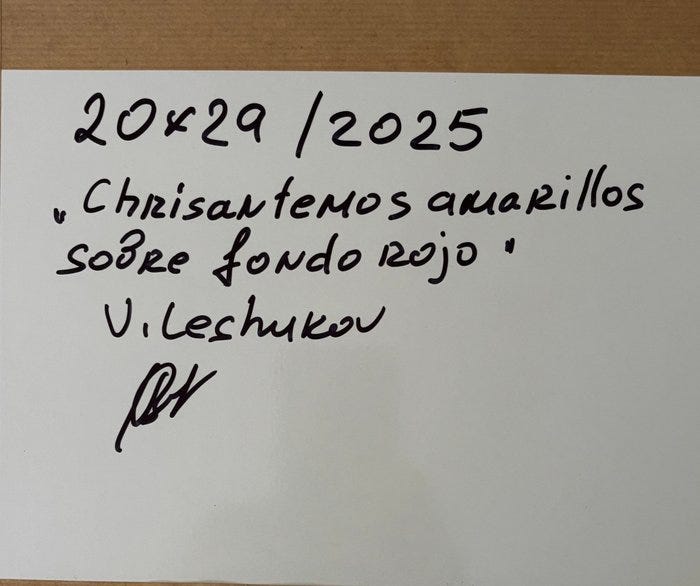 20x29 /2025
„Chrisantemos amarillos
sobre fondo rojo"
V. Leshukov